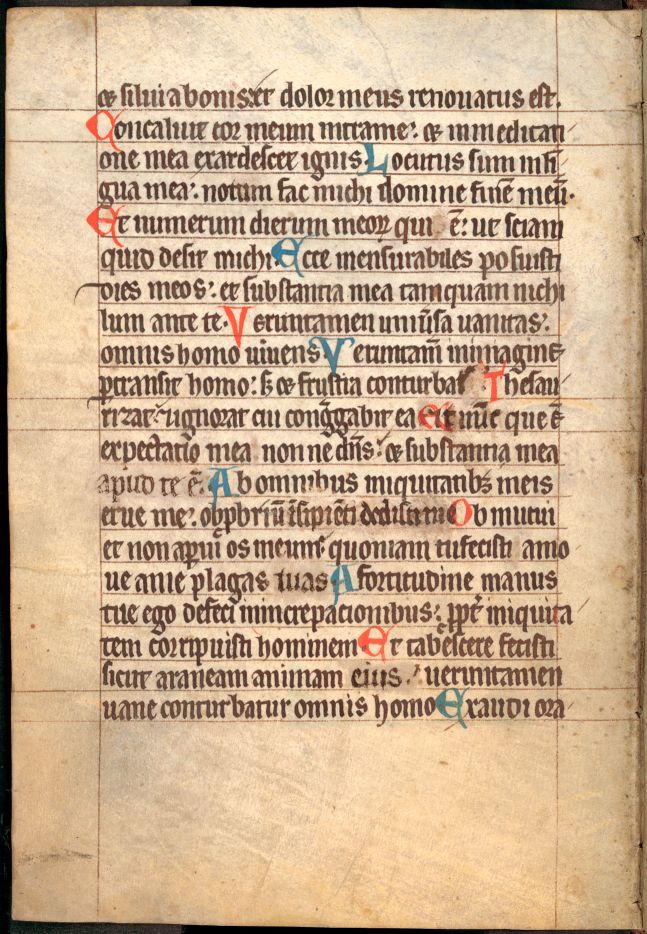 ⁊ silui a bonis: et dolor meus renouatus est.
Concaluit cor meum intra me: ⁊ in meditati
one mea exardescet ignis. Locutus sum in lī
gua mea: notum fac michi domine finē meū.
Et numerum dierum meoꝝ qui ē: ut sciam
quid desit michi. Ecce mensurabiles posuisti
dies meos: et substantia mea tamquam nichi
lum ante te. Veruntamen uniūsa uanitas:
omnis homo uiuens. Veruntam̄ in imagine
ꝑtransit homo: s; ⁊ frustra conturbat. Thesau
rizat: ⁊ ignorat cui congregabit ea. Et nūc que ē
expectatio mea nonne dn̄s: ⁊ substantia mea
apud te ē. Ab omnibus iniquitatibꝫ meis
erue me: obprriū īsipiēti dedisti me. Obmutui
et non apui os meum: quoniam tu fecisti amo
ue a me plagas tuas. A fortitudine manus
tue ego defeci in increpacionibus: ꝓpt̄ iniquita
tem corripuisti hominem. Et tabescere fecisti
sicut araneam animam eius: ueruntamen
uane conturbatur omnis homo. Exaudi ora